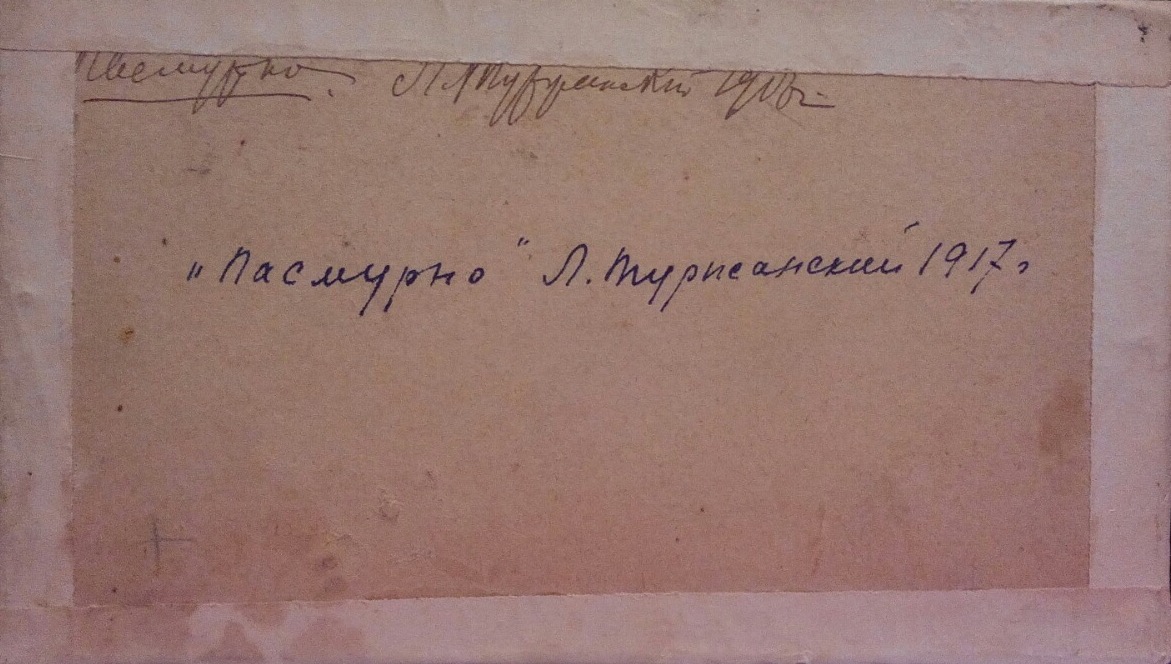 Пасмурно. Л. Туржанский
„Пасмурно" Л. Туржанский 1917г